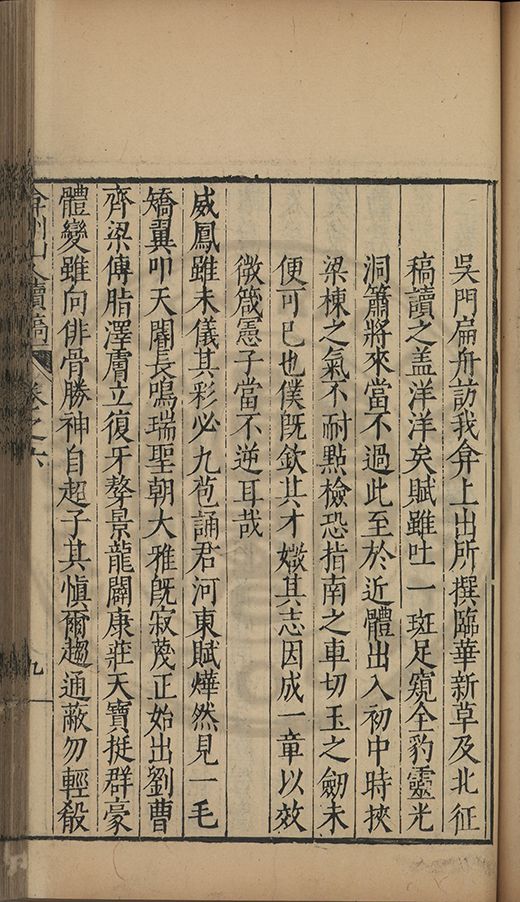 吳門扁舟訪我弇上出所撰臨華新草及北征
稿讀之盖洋洋矣賦雖吐一斑足窺全豹靈光
洞簫將來當不過此至於近體出入初中時挾
梁棟之氣不耐點檢恐指南之車切玉之劒未
便可已也僕既欽其才媺其志因成一章以效
微箴憲子當不逆耳哉
威鳳雖未儀其彩必九苞誦君河東賦燁然見一毛
矯翼叩天閽長鳴瑞聖朝大雅既寂蔑正始出劉曹
齊梁傅脂澤膚立復牙聱景龍闢康莊天寶挺群豪
體變雖向俳骨勝神自超子其慎爾趨通蔽勿輕殽
弇州山人續稿 卷之六 九